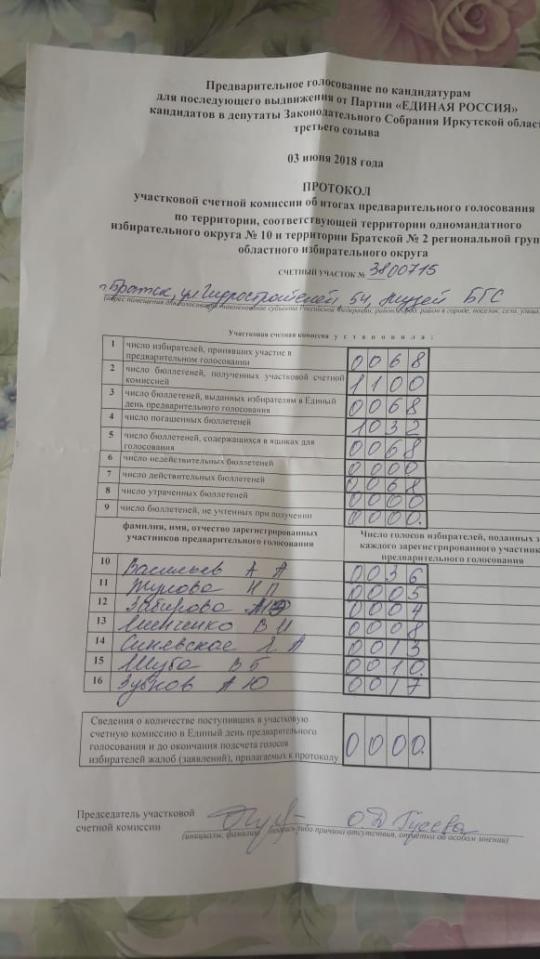 Предварительное голосование по кандидатурам
для последующего выдвижения от Партии «ЕДИНАЯ РОССИЯ»
кандидатов в депутаты Законодательного Собрания Иркутской област
третьего созыва
03 июня 2018 года
ПРОТОКОЛ
участковой счетной комиссии об итогах предварительного голосования
по территории, соответствующей территории одномандатного
избирательного округа № 10 и территории Братской № 2 региональной груп
областного избирательного округа
СЧЕТНЫЙ УЧАСТОК № 3800715
г. Братск, ул Гидростроителей, 54, музей БГС
Участковая счетная комиссия установила:
1 число избирателей, принявших участие в предварительном голосовании 0068
2 число бюллетеней, полученных участковой счетной комиссией 1100
3 число бюллетеней, выданных избирателям в Единый день предварительного голосования 0068
4 число погашенных бюллетеней 1032
5 число бюллетеней, содержащихся в ящиках для голосования 0068
6 число недействительных бюллетеней 0000
7 число действительных бюллетеней 0068
8 число утраченных бюллетеней 0000
9 число бюллетеней, не учтенных при получении 0000.
фамилия, имя, отчество зарегистрированных участников предварительного голосования
Число голосов избирателей, поданных з каждого зарегистрированного участник предварительного голосования
10 Васильев А А 0036
11 Жукова Н П 0005
12 Забирова 0004
13 В И 0008
14 А 0013
15 Шуба В Б 0010.
16 Зубков А Ю 0017
Сведения о количестве поступивших в участковую
счетную комиссию в Единый день предварительного
голосования и до окончания подсчета голосов
избирателей жалоб (заявлений), прилагаемых к протоколу 0000.
Председатель участковой
счетной комиссии О Д Гусева
(инициалы, фамилия, подпись либо причина отсутствия, отметка об особом мнении)